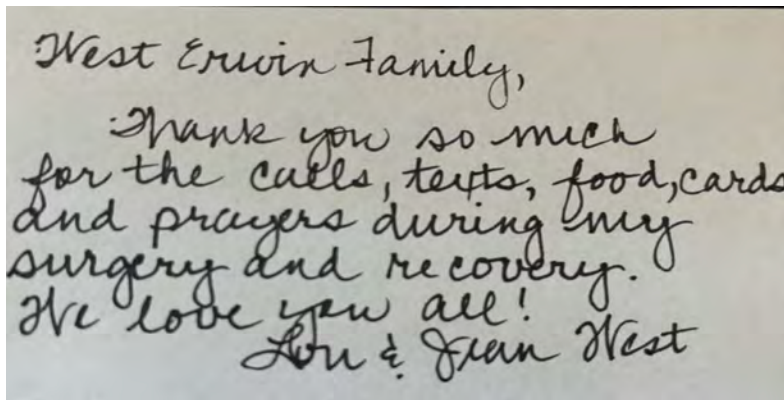 West Erwin Family,
Thank you so much
for the calls, texts, food, cards
and prayers during my
surgery and recovery.
We love you all!
& Jean West